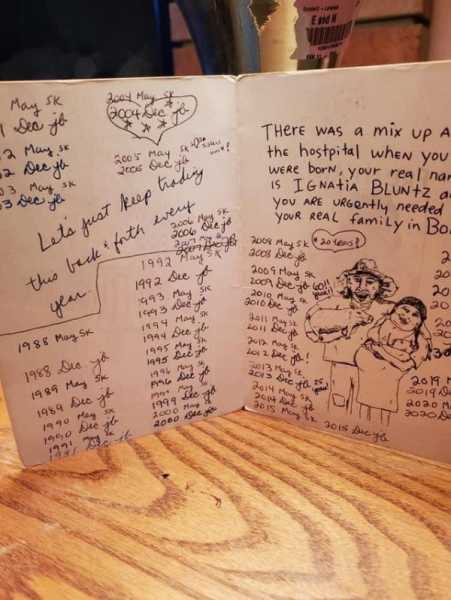 E and M
May SK
1 Dec jb
2 May SK
2 Dec jb
03 May SK
03 Dec jb
2004 May SK
2004 Dec jb
2005 May SK
2005 Dec jb
Let's just keep trading
this back & forth every
year.
2006 May SK
2006 Dec jb
2007 Dec jb
1988 May SK
1988 Dec jb
1989 May SK
1989 Dec jb
1990 May SK
1990 Dec jb
1991 May SK
1991 Dec jb
1992 May SK
1992 Dec jb
1993 May SK
1993 Dec jb
1994 May SK
1994 Dec jb
1995 May SK
1995 Dec jb
1996 May SK
1996 Dec jb
1999 Dec jb
2000 May SK
2000 Dec jb
THERE WAS A MIX UP A
the hostpital when you
WERE born, your real nam
is IGNATIA BLUNTZ a
you are urgently needed
your real family in Bo
2008 May SK
2008 Dec jb
20 years!
2009 May SK
2009 Dec jb
2010 May SK
2010 Dec jb
2011 May SK
2011 Dec jb
2012 May SK
2012 Dec jb!
2013 May SK
2013 Dec jb
2014 May SK
2014 Dec jb
2015 May SK
2015 Dec jb
2
20
2019 M
2019 D
2020 M
2020 D